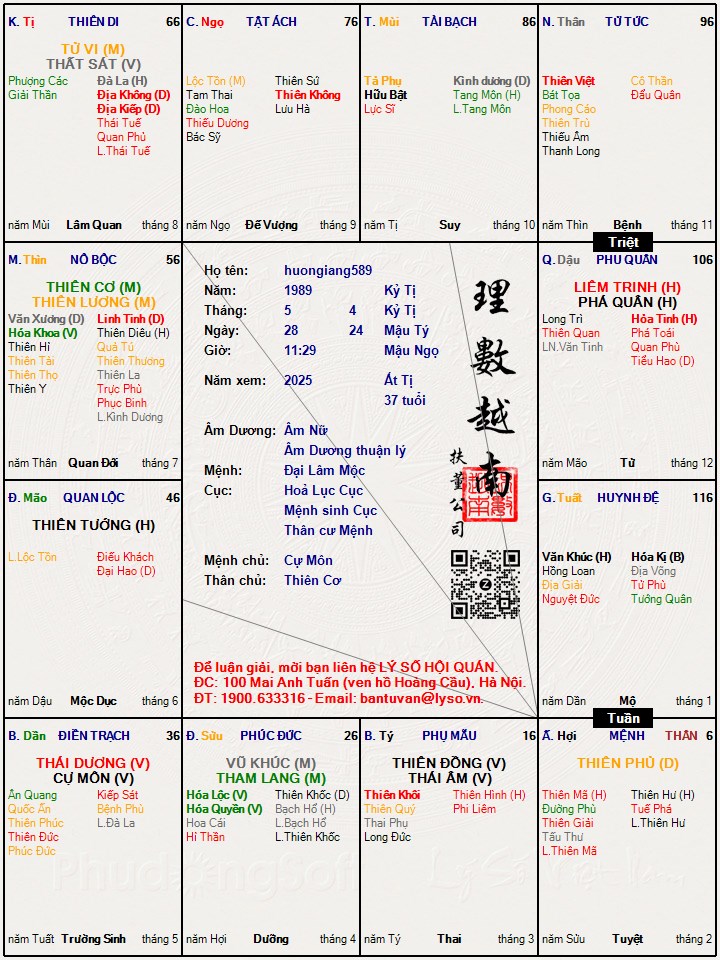 K. Tị THIÊN DI 66
TỬ VI (M)
THẤT SÁT (V)
Phượng Các Đà La (H)
Giải Thần Địa Không (D)
Địa Kiếp (D)
Thái Tuế
Quan Phủ
L.Thái Tuế
năm Mùi Lâm Quan tháng 8
C. Ngọ TẬT ÁCH 76
Lộc Tồn (M) Thiên Sứ
Tam Thai Thiên Không
Đào Hoa Lưu Hà
Thiếu Dương
Bác Sỹ
năm Ngọ Đế Vượng tháng 9
T. Mùi TÀI BẠCH 86
Tả Phụ Kình dương (D)
Hữu Bật Tang Môn (H)
Lực Sĩ L.Tang Môn
năm Tị Suy tháng 10
N. Thân TỬ TỨC 96
Thiên Việt Cô Thần
Bát Tọa Đẩu Quân
Phong Cáo
Thiên Trù
Thiếu Âm
Thanh Long
năm Thìn Bệnh tháng 11
Triệt
M. Thìn NÔ BỘC 56
THIÊN CƠ (M)
THIÊN LƯƠNG (M)
Văn Xương (D) Linh Tinh (D)
Hóa Khoa (V) Thiên Diêu (H)
Thiên Hỉ Quả Tú
Thiên Tài Thiên Thương
Thiên Thọ Thiên La
Thiên Y Trực Phù
Phục Binh
L.Kình Dương
năm Thân Quan Đới tháng 7
Họ tên: huongiang589
Năm: 1989 Kỷ Tị
Tháng: 5 4 Kỷ Tị
Ngày: 28 24 Mậu Tý
Giờ: 11:29 Mậu Ngọ
Năm xem: 2025 Ất Tị
37 tuổi
Âm Dương: Âm Nữ
Âm Dương thuận lý
Mệnh: Đại Lâm Mộc
Cục: Hoả Lục Cục
Mệnh sinh Cục
Thân cư Mệnh
Mệnh chủ: Cự Môn
Thân chủ: Thiên Cơ
理數越南
扶董公司
Z
Để luận giải, mời bạn liên hệ LÝ SỐ HỘI QUÁN.
ĐC: 100 Mai Anh Tuấn (ven hồ Hoàng Cầu), Hà Nội.
ĐT: 1900.633316 - Email: bantuvan@lyso.vn.
Q. Dậu PHU QUÂN 106
LIÊM TRINH (H)
PHÁ QUÂN (H)
Long Trì Hỏa Tinh (H)
Thiên Quan Phá Toái
LN.Văn Tinh Quan Phù
Tiểu Hao (D)
năm Mão Tử tháng 12
Đ. Mão QUAN LỘC 46
THIÊN TƯỚNG (H)
L.Lộc Tồn Điếu Khách
Đại Hao (D)
năm Dậu Mộc Dục tháng 6
G. Tuất HUYNH ĐỆ 116
Văn Khúc (H) Hóa Kị (B)
Hồng Loan Địa Võng
Địa Giải Tử Phù
Nguyệt Đức Tướng Quân
năm Dần Mộ tháng 1
Tuần
B. Dần ĐIỀN TRẠCH 36
THÁI DƯƠNG (V)
CỰ MÔN (V)
Ân Quang Kiếp Sát
Quốc Ấn Bệnh Phù
Thiên Phúc L.Đà La
Thiên Đức
Phúc Đức
năm Tuất Trường Sinh tháng 5
Đ. Sửu PHÚC ĐỨC 26
VŨ KHÚC (M)
THAM LANG (M)
Hóa Lộc (V) Thiên Khốc (D)
Hóa Quyền (V) Bạch Hổ (H)
Hoa Cái L.Bạch Hổ
Hỉ Thần L.Thiên Khốc
năm Hợi Dưỡng tháng 4
B. Tý PHỤ MẪU 16
THIÊN ĐỒNG (V)
THÁI ÂM (V)
Thiên Khôi Thiên Hình (H)
Thiên Quý Phi Liêm
Thai Phụ
Long Đức
năm Tý Thai tháng 3
Ấ. Hợi MỆNH THÂN 6
THIÊN PHỦ (D)
Thiên Mã (H) Thiên Hư (H)
Đường Phù Tuế Phá
Thiên Giải L.Thiên Hư
Tấu Thư
L.Thiên Mã
năm Sửu Tuyệt tháng 2